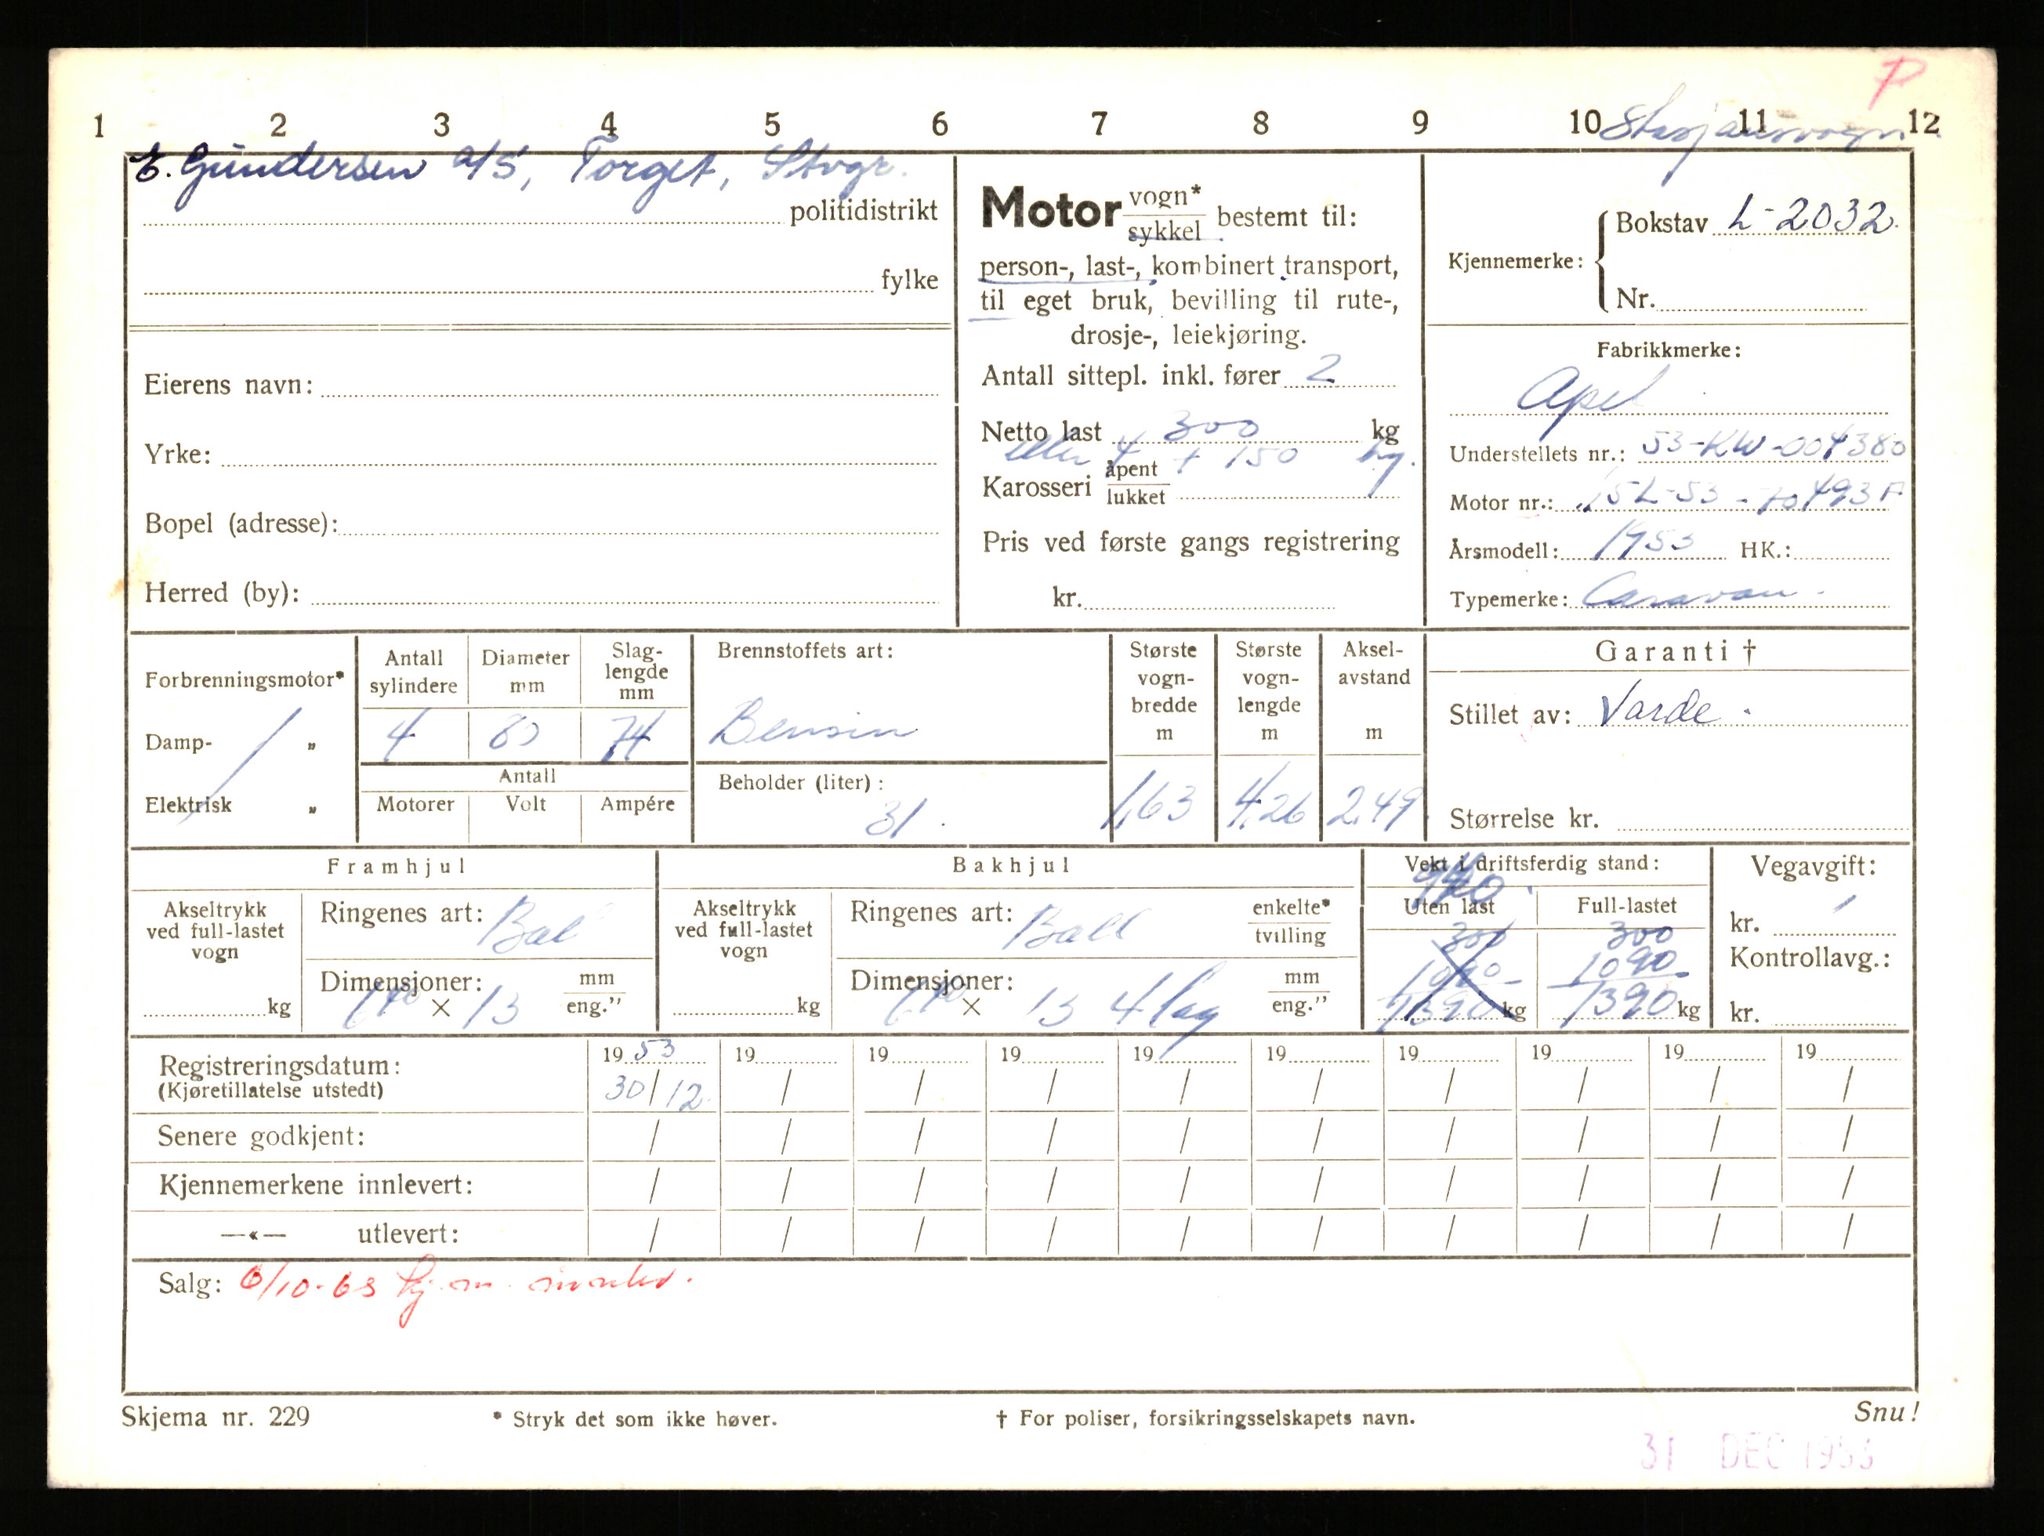 P
1 2 3 4 5 6 7 8 9 10 11 12
Stasjonsvogn.
E. Gundersen a/s, Torget, Stvgr.
politidistrikt
fylke
Eierens navn:
Yrke:
Bopel (adresse):
Herred (by):
Motor vogn* sykkel bestemt til:
person-, last-, kombinert transport,
til eget bruk, bevilling til rute-,
drosje-, leiekjøring.
Antall sittepl. inkl. fører 2
Netto last 300 kg
eller 4 + 150 kg.
Karosseri åpent lukket
Pris ved første gangs registrering
kr.
Kjennemerke: Bokstav L-2032.
Nr.
Fabrikkmerke:
Opel
Understellets nr.: 53-KW-004380
Motor nr.: 15L-53-70493F
Årsmodell: 1953 HK.:
Typemerke: Caravan.
Forbrenningsmotor*
Damp- "
Elektrisk "
Antall sylindere
4
Diameter mm
80
Slaglengde mm
74
Antall
Motorer Volt Ampére
Brennstoffets art:
Bensin
Beholder (liter):
31.
Største vogn-bredde m
1,63
Største vogn-lengde m
4,26
Aksel-avstand m
2,49
Garanti †
Stillet av: Varde.
Størrelse kr.
Framhjul
Akseltrykk ved full-lastet vogn
kg
Ringenes art: Bal
Dimensjoner: mm eng."
× 13
Bakhjul
Akseltrykk ved full-lastet vogn
kg
Ringenes art: Ball enkelte* tvilling
Dimensjoner: mm eng."
× 13 4 lag
Vekt i driftsferdig stand:
Uten last
300
1090
1390 kg
Full-lastet
300
1090
1390 kg
Vegavgift:
kr.
Kontrollavg.:
kr.
Registreringsdatum: 19 53 19 19 19 19 19 19 19 19 19
(Kjøretillatelse utstedt) 30/12. / / / / / / / / /
Senere godkjent: / / / / / / / / / /
Kjennemerkene innlevert: / / / / / / / / / /
—«— utlevert: / / / / / / / / / /
Salg: 6/10-63 kj.m. innlev.
Skjema nr. 229 * Stryk det som ikke høver. † For poliser, forsikringsselskapets navn. Snu!
31 DEC 1953